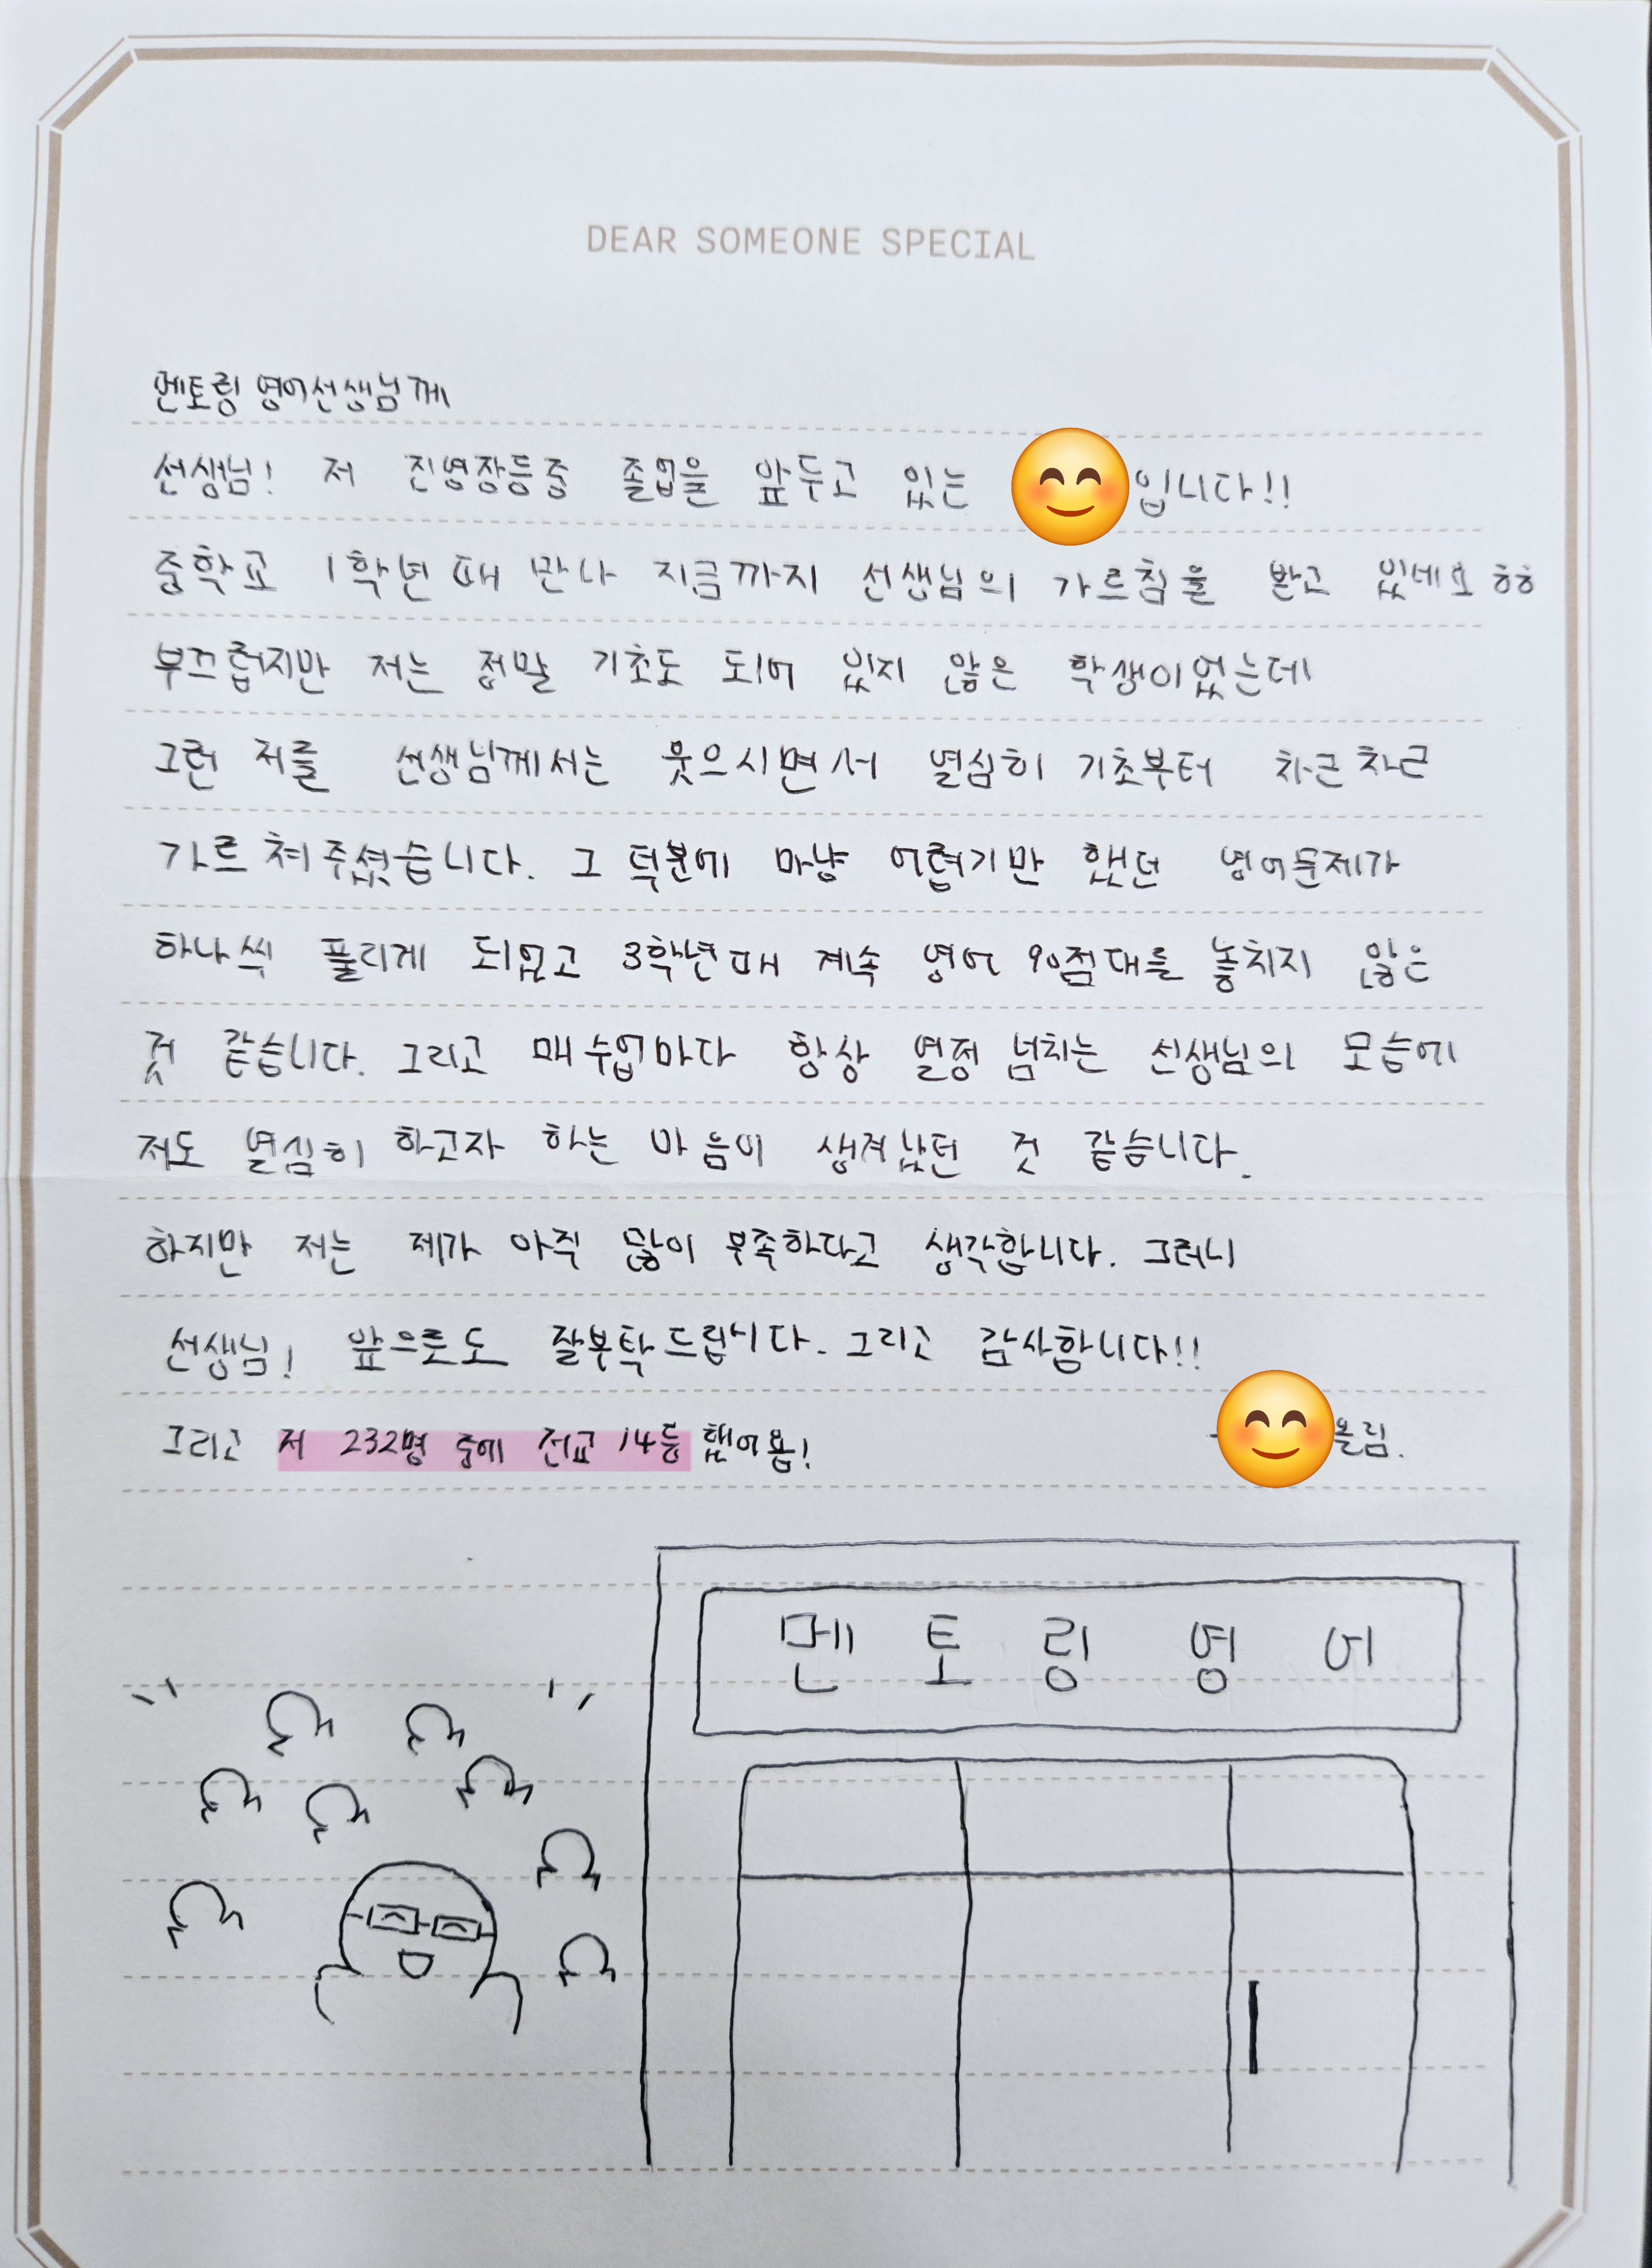 DEAR SOMEONE SPECIAL
멘토링 영어선생님께
선생님! 저 진영장등중 졸업을 앞두고 있는 입니다!!
중학교 1학년때 만나 지금까지 선생님의 가르침을 받고 있네요 ㅎㅎ
부끄럽지만 저는 정말 기초도 되어 있지 않은 학생이었는데
그런 저를 선생님께서는 웃으시면서 열심히 기초부터 차근차근
가르쳐주셨습니다. 그 덕분에 마냥 어렵기만 했던 영어문제가
하나씩 풀리게 되었고 3학년때 계속 영어 90점대를 놓치지 않은
것 같습니다. 그리고 매 수업마다 항상 열정 넘치는 선생님의 모습에
저도 열심히 하고자 하는 마음이 생겨났던 것 같습니다.
하지만 저는 제가 아직 많이 부족하다고 생각합니다. 그러니
선생님! 앞으로도 잘부탁드립니다. 그리고 감사합니다!!
그리고 저 232명 중에 전교 14등 했어욥! 올림.
멘토링영어